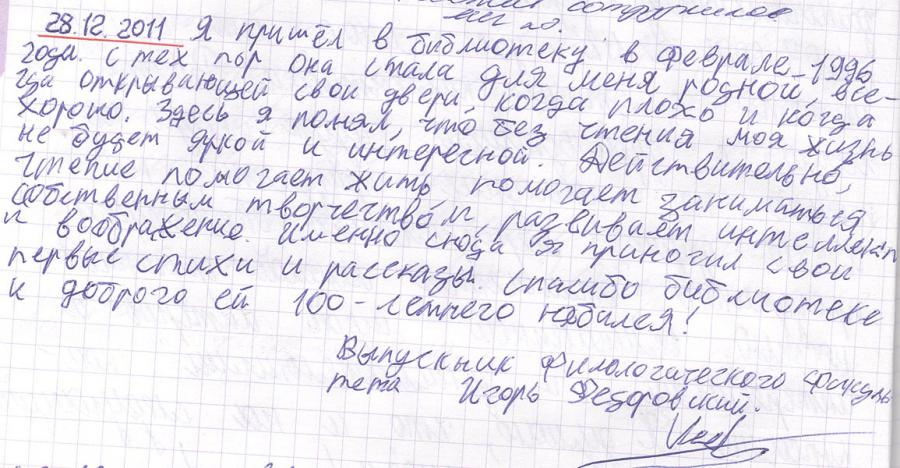 сотрудников
28.12.2011 Я пришёл в библиотеку в феврале 1996
года. С тех пор она стала для меня родной, все-
гда открывающей свои двери, когда плохо и когда
хорошо. Здесь я понял, что без чтения моя жизнь
не будет яркой и интересной. Действительно,
чтение помогает жить, помогает заниматься
собственным творчеством, развивает интеллект
и воображение. Именно сюда я приносил свои
первые стихи и рассказы. Спасибо библиотеке
и доброго ей 100-летнего юбилея!
Выпускник Филологического факуль-
тета Игорь Федоровский.